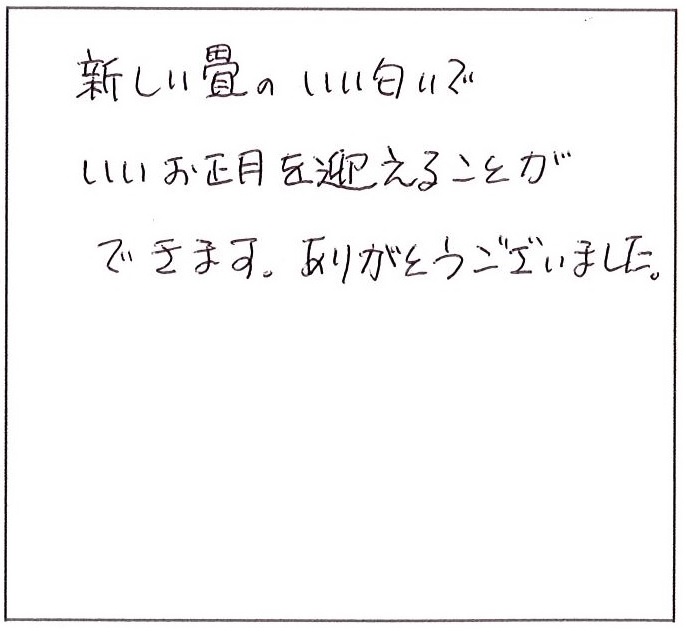 新しい畳の いい匂いで
いいお正月を迎えることが
できます。ありがとうございました。